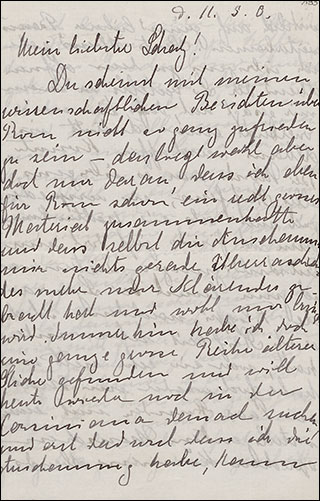 d. 11. 3. 0.
Mein liebster Schatz!
Du scheinst mit meinen
wissenschaftlichen Berichten über
Rom nicht so ganz zufrieden
zu sein – das liegt wohl aber
doch nur daran dass ich eben
für Rom schon ein recht grosses
Material zusammenhatte
und dass selbst die Anschauung
mir nichts gerade Überraschen-
des mehr nur Klärendes ge-
bracht hat und wohl nur
wird. Immerhin habe ich doch
eine ganze grosse Reihe älterer
Stiche gefunden und will
heute wieder noch in der
Corsiniana danach suchen
und auf das was dass ich die
Anschauung habe, kann